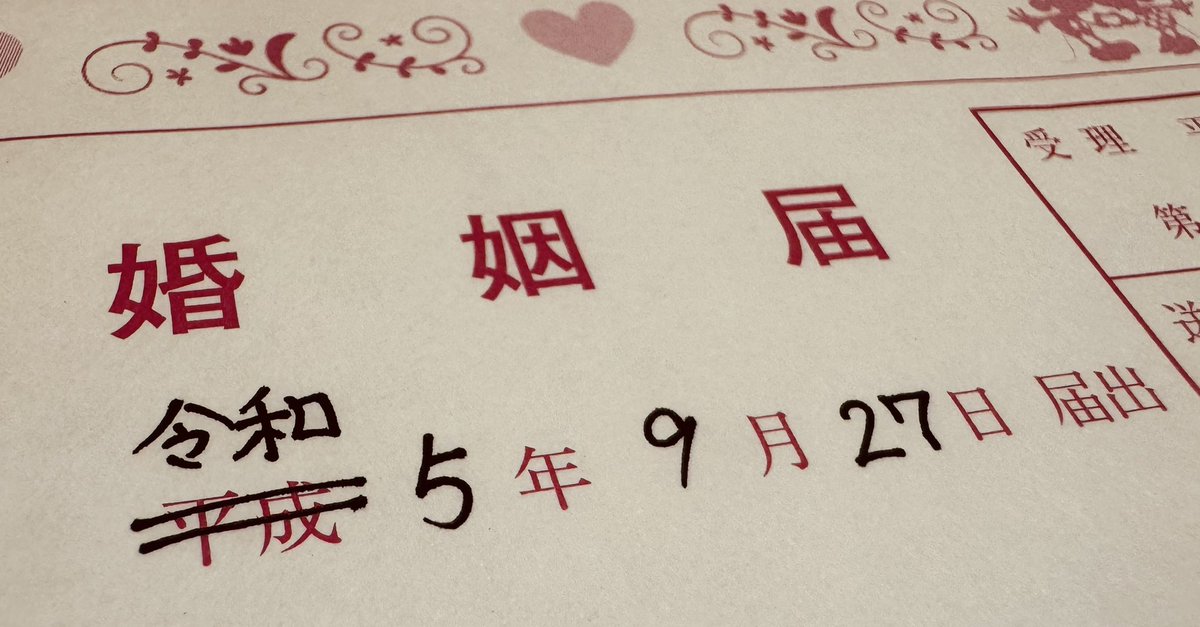 婚姻届
令和
平成 5年 9月 27日 届出
受理
第
送